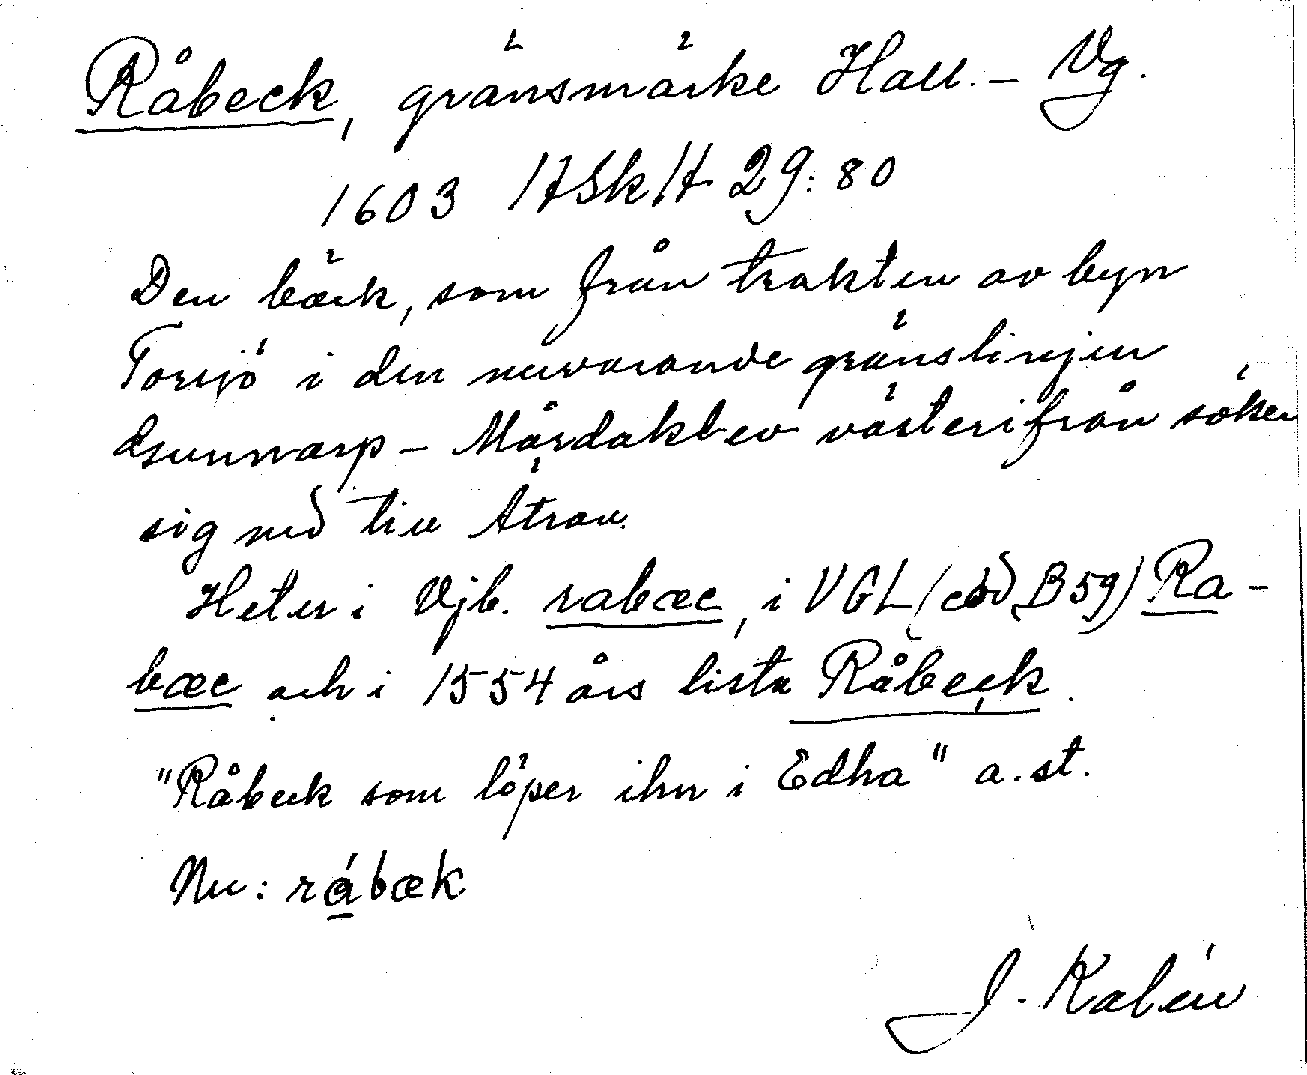 Råbeck, gränsmärke Hall. – Vg.
1603 HSkH 29:80
Den bäck, som från trakten av byn
Torsjö i den nuvarande gränslinjen
Gunnarp – Mårdaklev västerifrån söker
sig ned till Ätran.
Heter i Vjb. rabæc, i VGL (cod B59) Ra-
bæc och i 1554 års lista Råbeck.
"Råbeck som löper ihn i Edha" a. st.
Nu: rábæk
J. Kalén